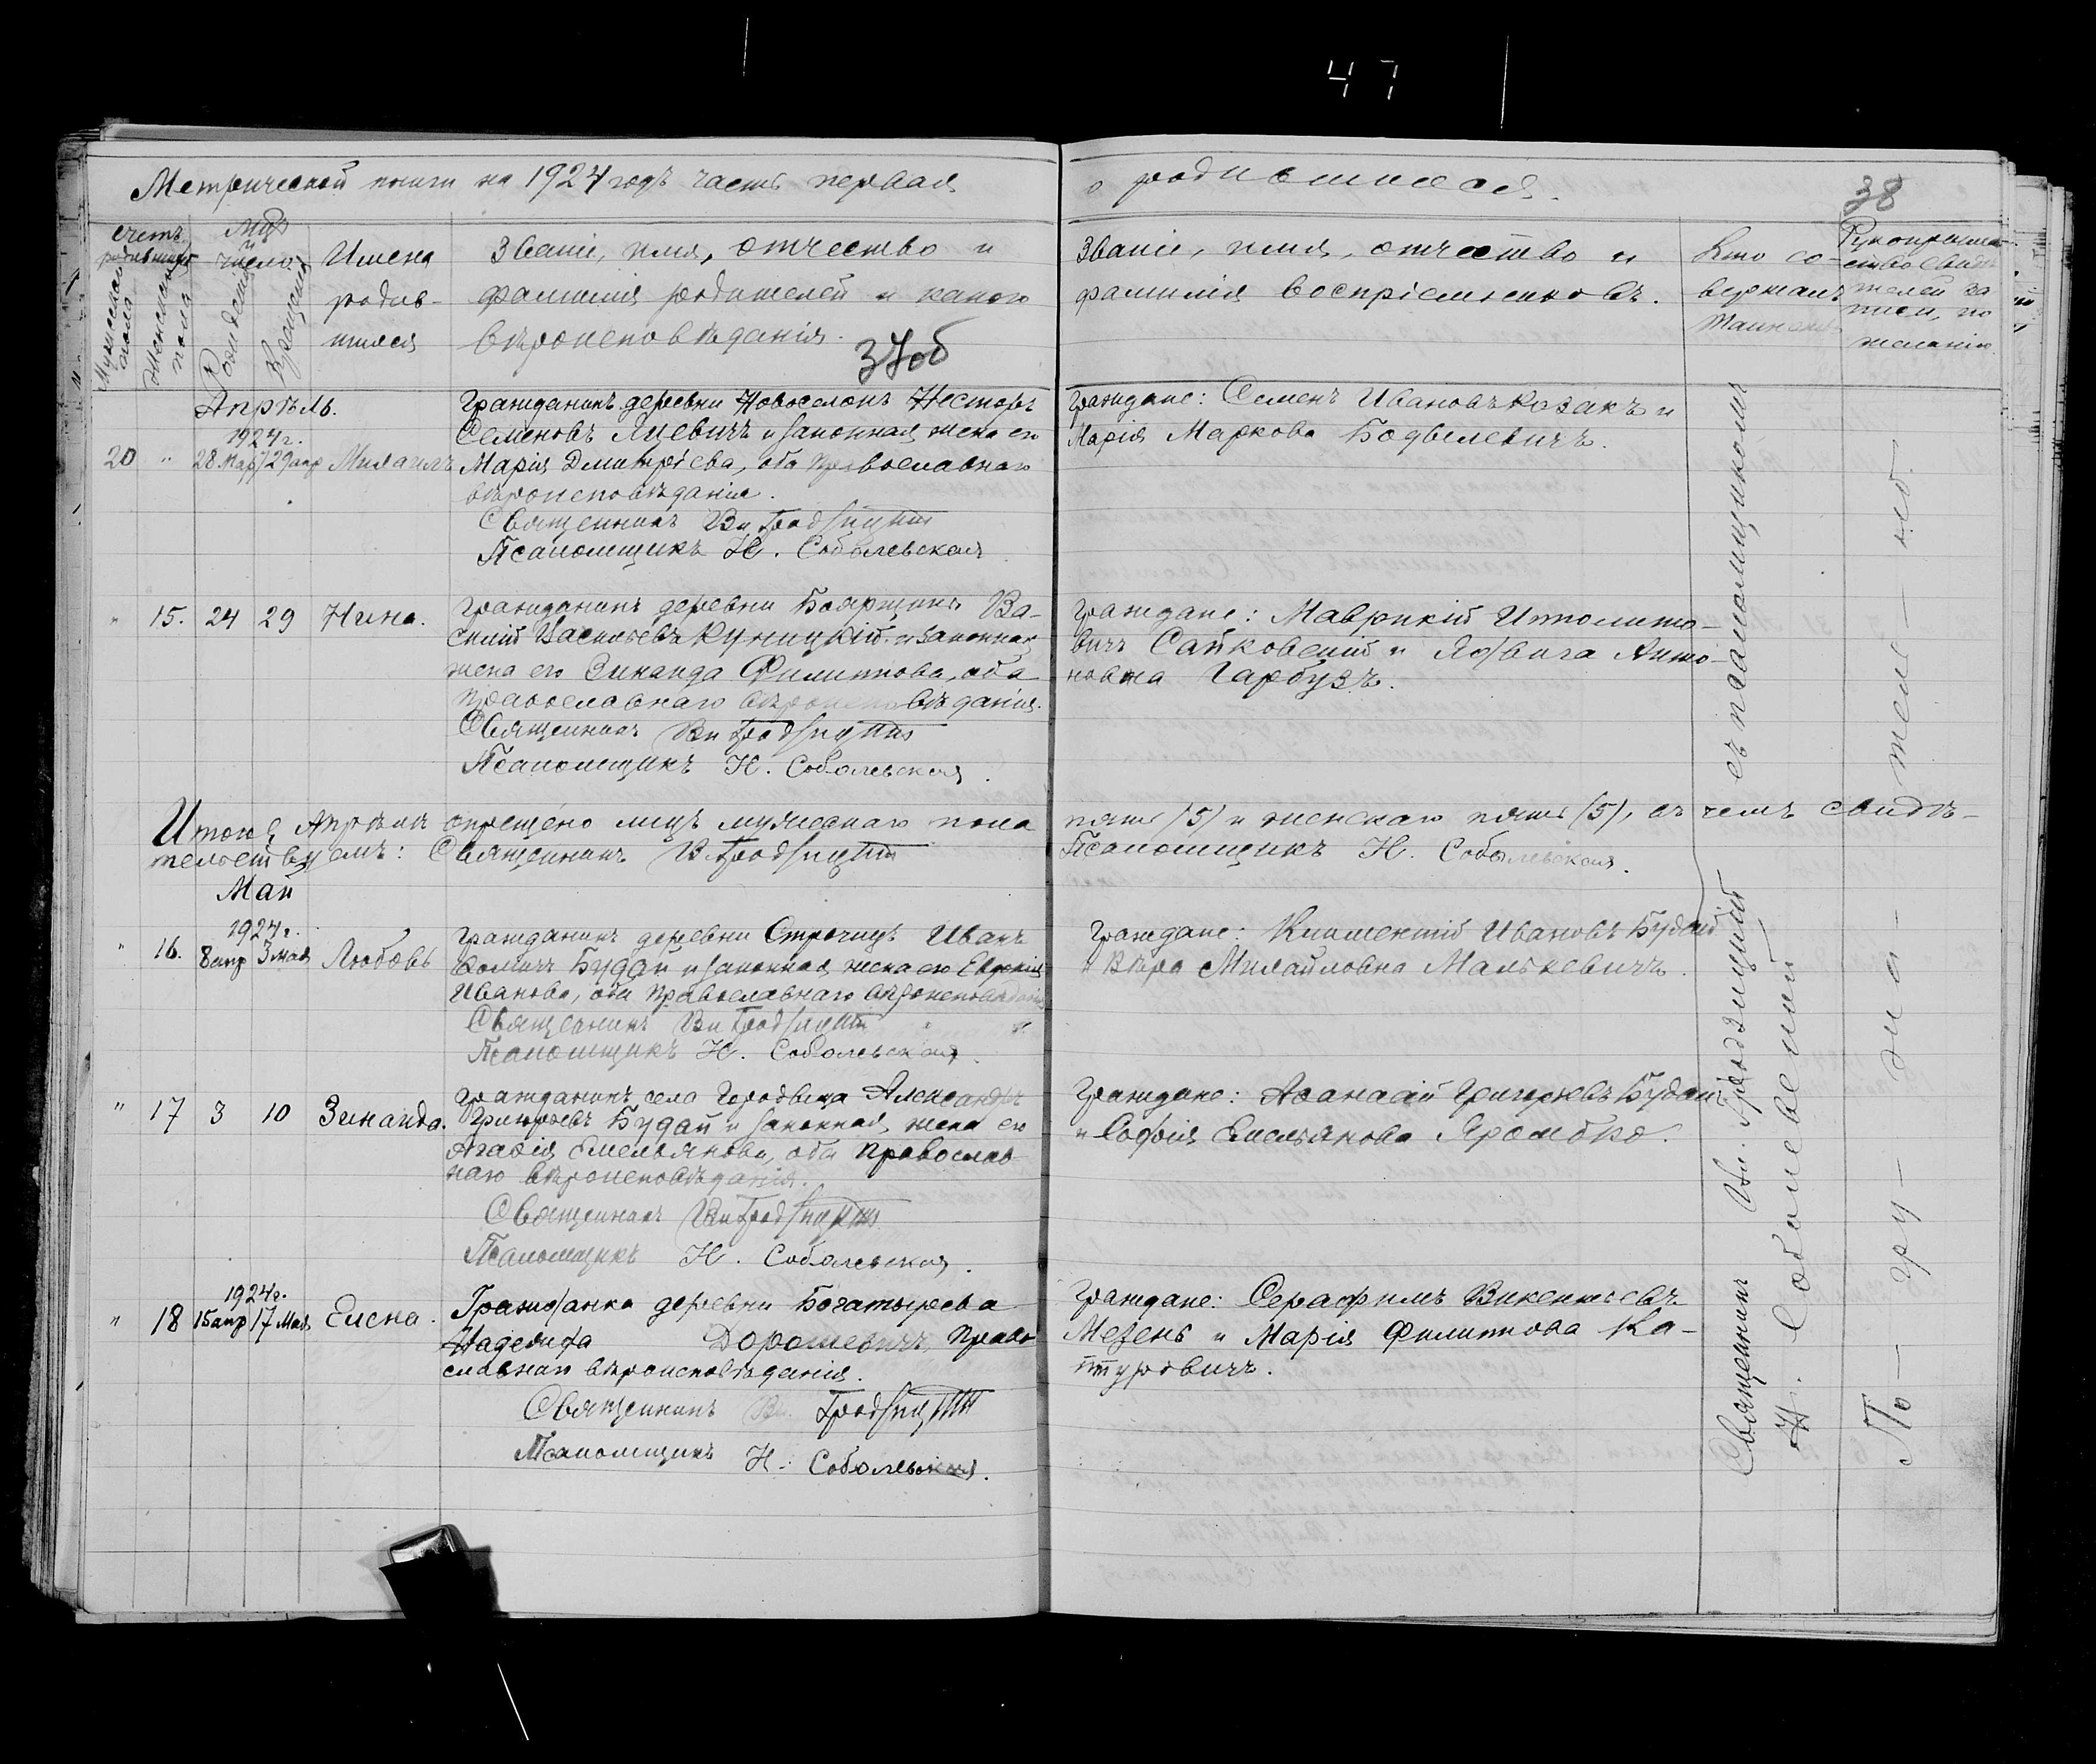 47
Метрической книги на 1924 годъ часть первая
о родившихся.
38
счетъ родившихся
Мужескаго пола
Женскаго пола
Мѣс. и число
Рожденія
Крещенія
Имена
родив-
шихся
Званіе, имя, отчество и
фамилія родителей и какого
вѣроисповѣданія.
37об
Званіе, имя, отчество и
фамилія воспріемниковъ.
Кто со-
вершалъ
таинство
Рукоприклад-
ство свидѣ-
телей за
писи, по
желанію.
Апрѣль.
1924 г.
20 " 28 Мар 29 апр Михаилъ
Гражданинъ деревни Новоселокъ Несторъ
Семеновъ Яцевичъ и законная жена его
Марія Димитріева, оба православнаго
вѣроисповѣданія.
Священникъ Вл Гродзицкій
Псаломщикъ Н. Соболевская
Граждане: Семенъ Ивановъ Козакъ и
Марія Маркова Бодвилевичъ.
" 15. 24 29 Нина.
Гражданинъ деревни Боярщина Ва-
силій Васильевъ Куницкій и законная
жена его Зинаида Филиппова, оба
православнаго вѣроисповѣданія.
Священникъ Вл Гродзицкій
Псаломщикъ Н. Соболевская.
Граждане: Маврикій Ипполито-
вичъ Сайковскій и Ядвига Анто-
новна Гарбузъ.
Итого въ Апрѣлѣ крещено лицъ мужескаго пола
пять (5) и женскаго пять (5), въ чемъ свидѣ-
тельствуемъ: Священникъ Вл Гродзицкій
Псаломщикъ Н. Соболевская.
Май
1924 г.
" 16. 8 апр 3 мая Любовь
Гражданинъ деревни Строчицъ Иванъ
Фомичъ Будай и законная жена его Евдокія
Иванова, оба православнаго вѣроисповѣданія
Священникъ Вл Гродзицкій
Псаломщикъ Н. Соболевская.
Граждане: Климентій Ивановъ Будай
и Вѣра Михайловна Малькевичъ.
" 17 3 10 Зинаида.
Гражданинъ села Городьища Александръ
Григорьевъ Будай и законная жена его
Агафія Емельянова, оба православ-
наго вѣроисповѣданія.
Священникъ Вл Гродзицкій
Псаломщикъ Н. Соболевская.
Граждане: Афанасій Григорьевъ Будай
и Софія Емельянова Яромбко.
1924 г.
" 18 15 апр 17 Мая Елена.
Гражданка деревни Богатырева
Надежда Дорошевичъ, право
славнаго вѣроисповѣданія.
Священникъ Вл. Гродзицкій
Псаломщикъ Н. Соболевская.
Граждане: Серафимъ Викентьевъ
Мезень и Марія Филиппова Ка-
туровичъ.
Священникъ Вл. Гродзицкій съ псаломщикомъ
Н. Соболевской
По — гру — зна — тель — ноб.